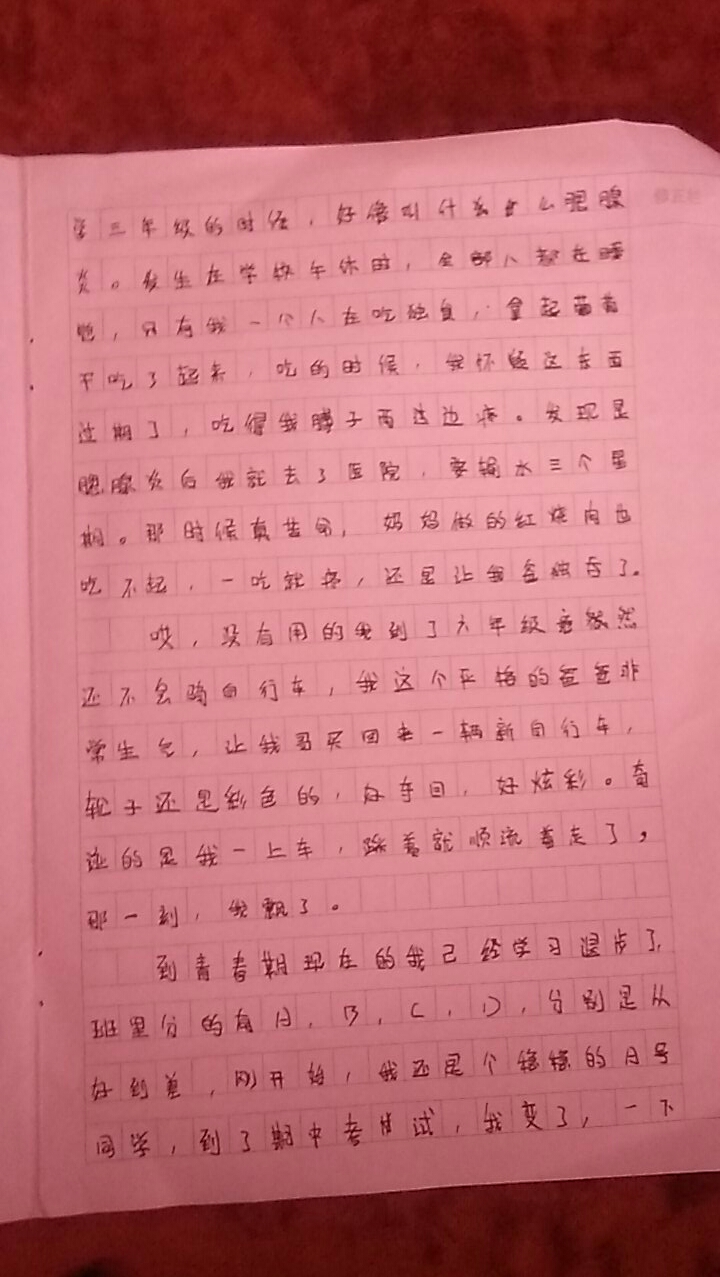 学三年级的时候，好像叫什么什么腮腺
炎。发生在学校午休时，全部人都在睡
觉，只有我一个人在吃独食，拿起葡萄
干吃了起来，吃的时候，我怀疑这东西
过期了，吃得我脖子两边边疼。发现是
腮腺炎后我就去了医院，要输水三个星
期。那时候真苦命，妈妈做的红烧肉也
吃不起，一吃就疼，还是让我爸独吞了。
哎，没有用的我到了六年级竟然
还不会骑自行车，我这个严格的爸爸非
常生气，让我哥买回来一辆新自行车，
轮子还是彩色的，好夺目，好炫彩。奇
迹的是我一上车，踩着就顺流着走了，
那一刻，我飘了。
到青春期现在的我已经学习退步了，
班里分的有A，B，C，D，分别是从
好到差，刚开始，我还是个稳稳的A号
同学，到了期中考试，我变了，一下